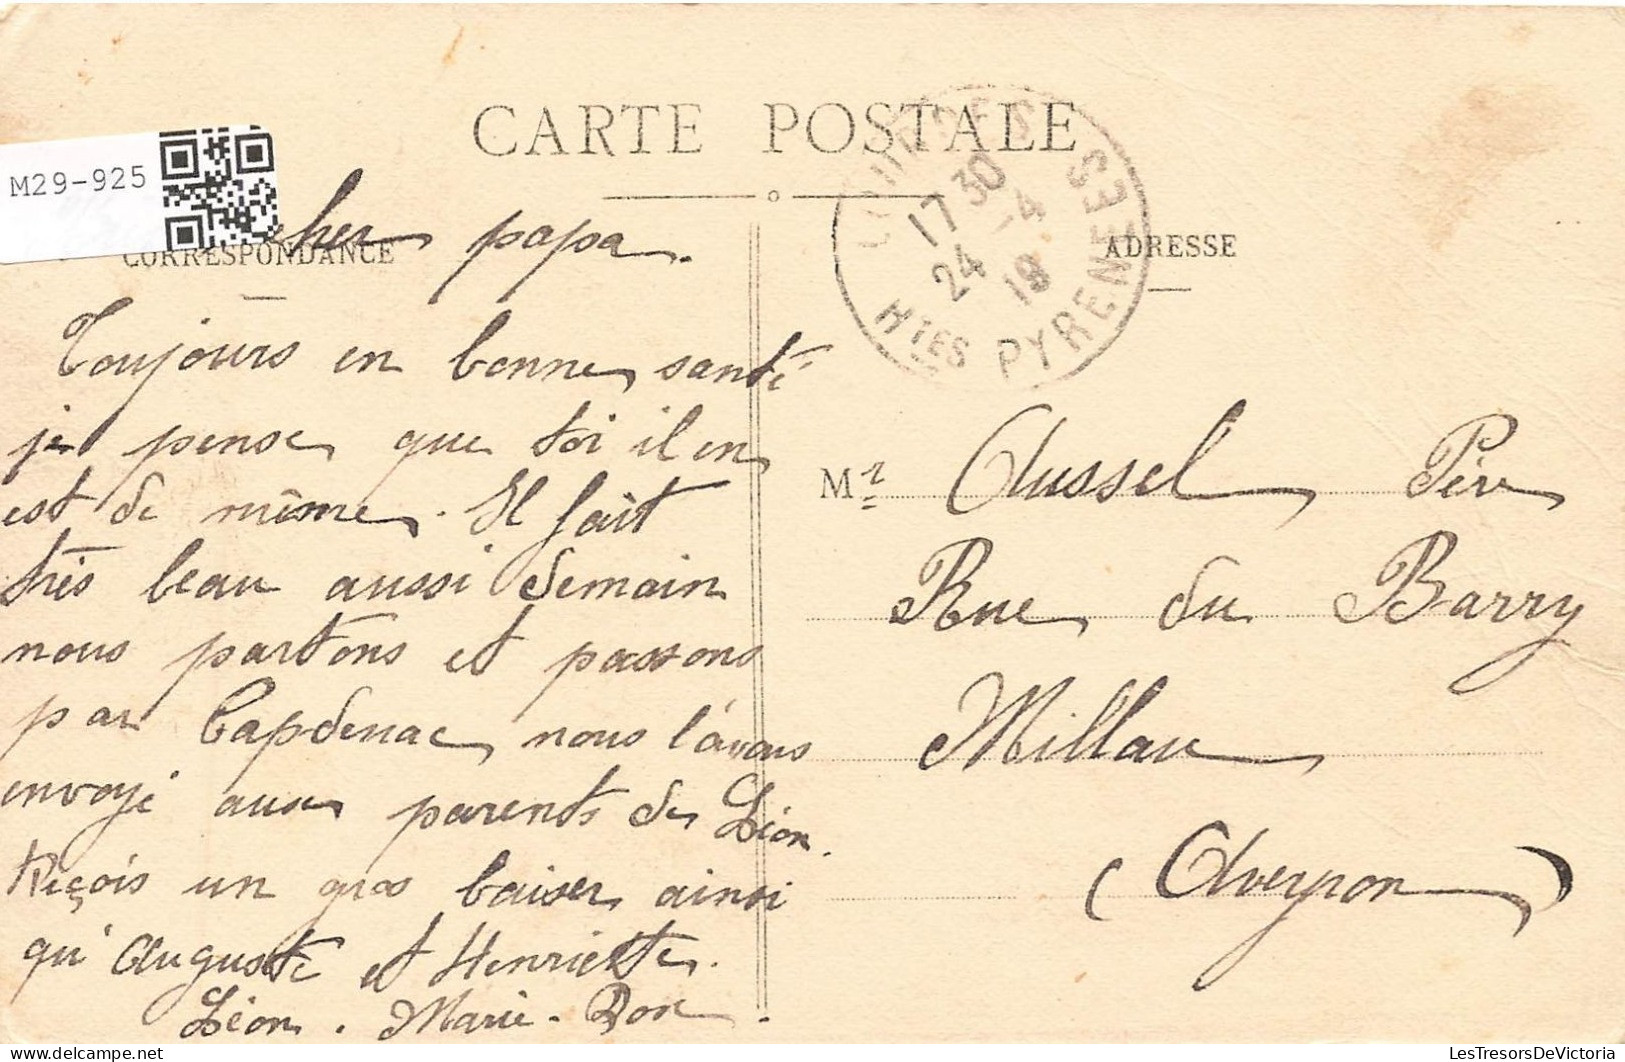 CARTE POSTALE
M29-925
CORRESPONDANCE
ADRESSE
LOURDES
17 30
24 -4
19
Htes PYRENEES
cher papa.
Toujours en bonne santé
je pense que toi il en
est de même. Il fait
très beau aussi demain
nous partons et passons
par Capdenac, nous l'avons
envoyé aux parents de Léon.
Reçois un gros baiser ainsi
qu'Auguste et Henriette.
Léon. Marie-
Mr Aussel Père
Rue du Barry
Millau
(Aveyron)
LesTresorsDeVictoria
delcampe.net